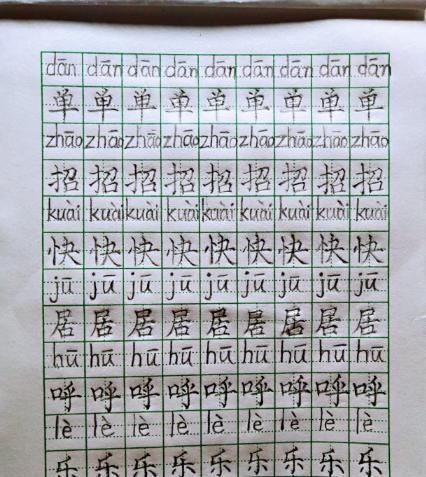 dān dān dān dān dān dān dān dān dān
单 单 单 单 单 单 单 单 单
zhāo zhāo zhāo zhāo zhāo zhāo zhāo zhāo zhāo
招 招 招 招 招 招 招 招 招
kuài kuài kuài kuài kuài kuài kuài kuài kuài
快 快 快 快 快 快 快 快 快
jū jū jū jū jū jū jū jū jū
居 居 居 居 居 居 居 居 居
hū hū hū hū hū hū hū hū hū
呼 呼 呼 呼 呼 呼 呼 呼 呼
lè lè lè lè lè lè lè lè lè
乐 乐 乐 乐 乐 乐 乐 乐 乐